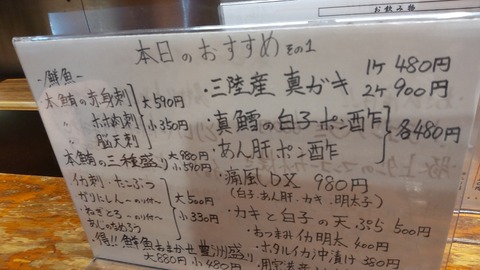 お飲み物
本日のおすすめ その1
-鮮魚-
・本鮪の赤身刺
〃 ホホ肉刺
〃 脳天刺
大590円
小350円
本鮪の三種盛り 大980円
小590円
イカ刺・たこぶつ
ガリたらし
・ねぎとろ
・あじのなめろう
大500円
小330円
・得!!鮮魚おまかせ豊洲盛り
大880円 小480円
・三陸産 真ガキ 1ケ 480円
2ケ 900円
・真鱈の白子ポン酢
・あん肝ポン酢
各480円
・痛風DX 980円
(白子・あん肝・カキ・明太子)
・カキと白子の天ぷら 500円
・おつまみイカ明太 400円
・ホタルイカ沖漬け 380円